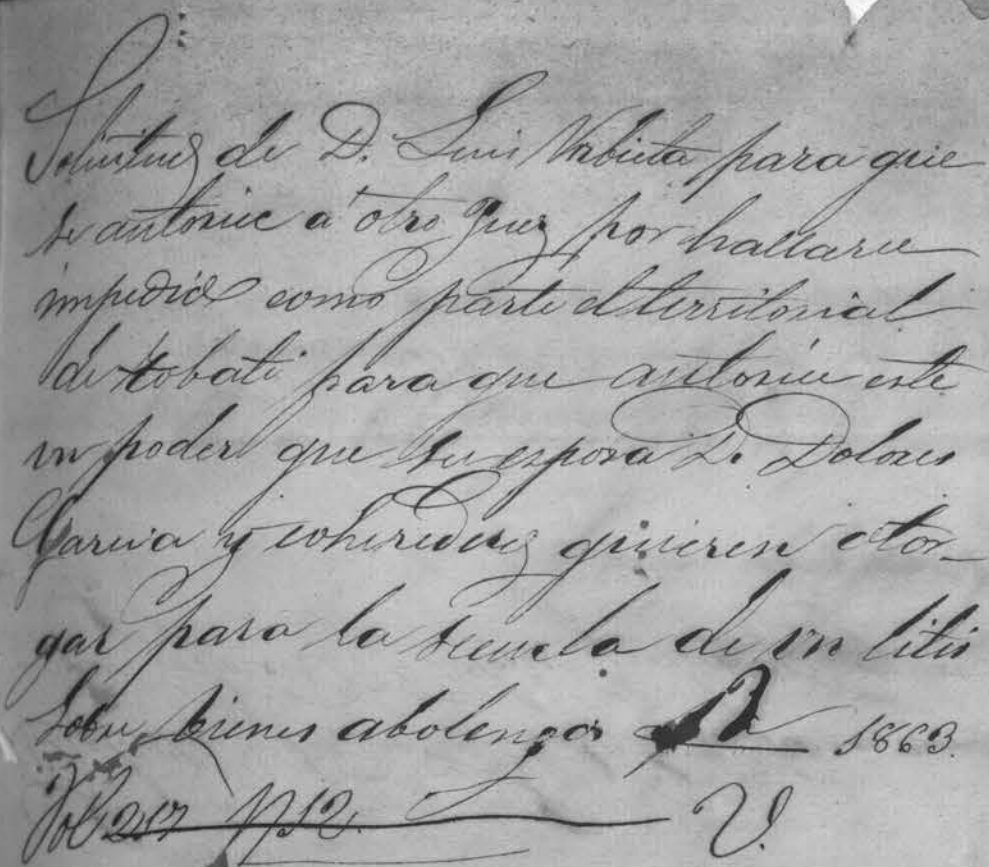 Solicitud de D. Luis Urbieta para que
se autorice a otro Juez por hallarse
impedido como parte el territorial
de tobati para que autorice este
un poder que su esposa D. Dolores
Garcia y coherederos quieren otor-
gar para la secuela de un litis
sobre bienes abolengos 1863.
Vol 217 N 12. V.